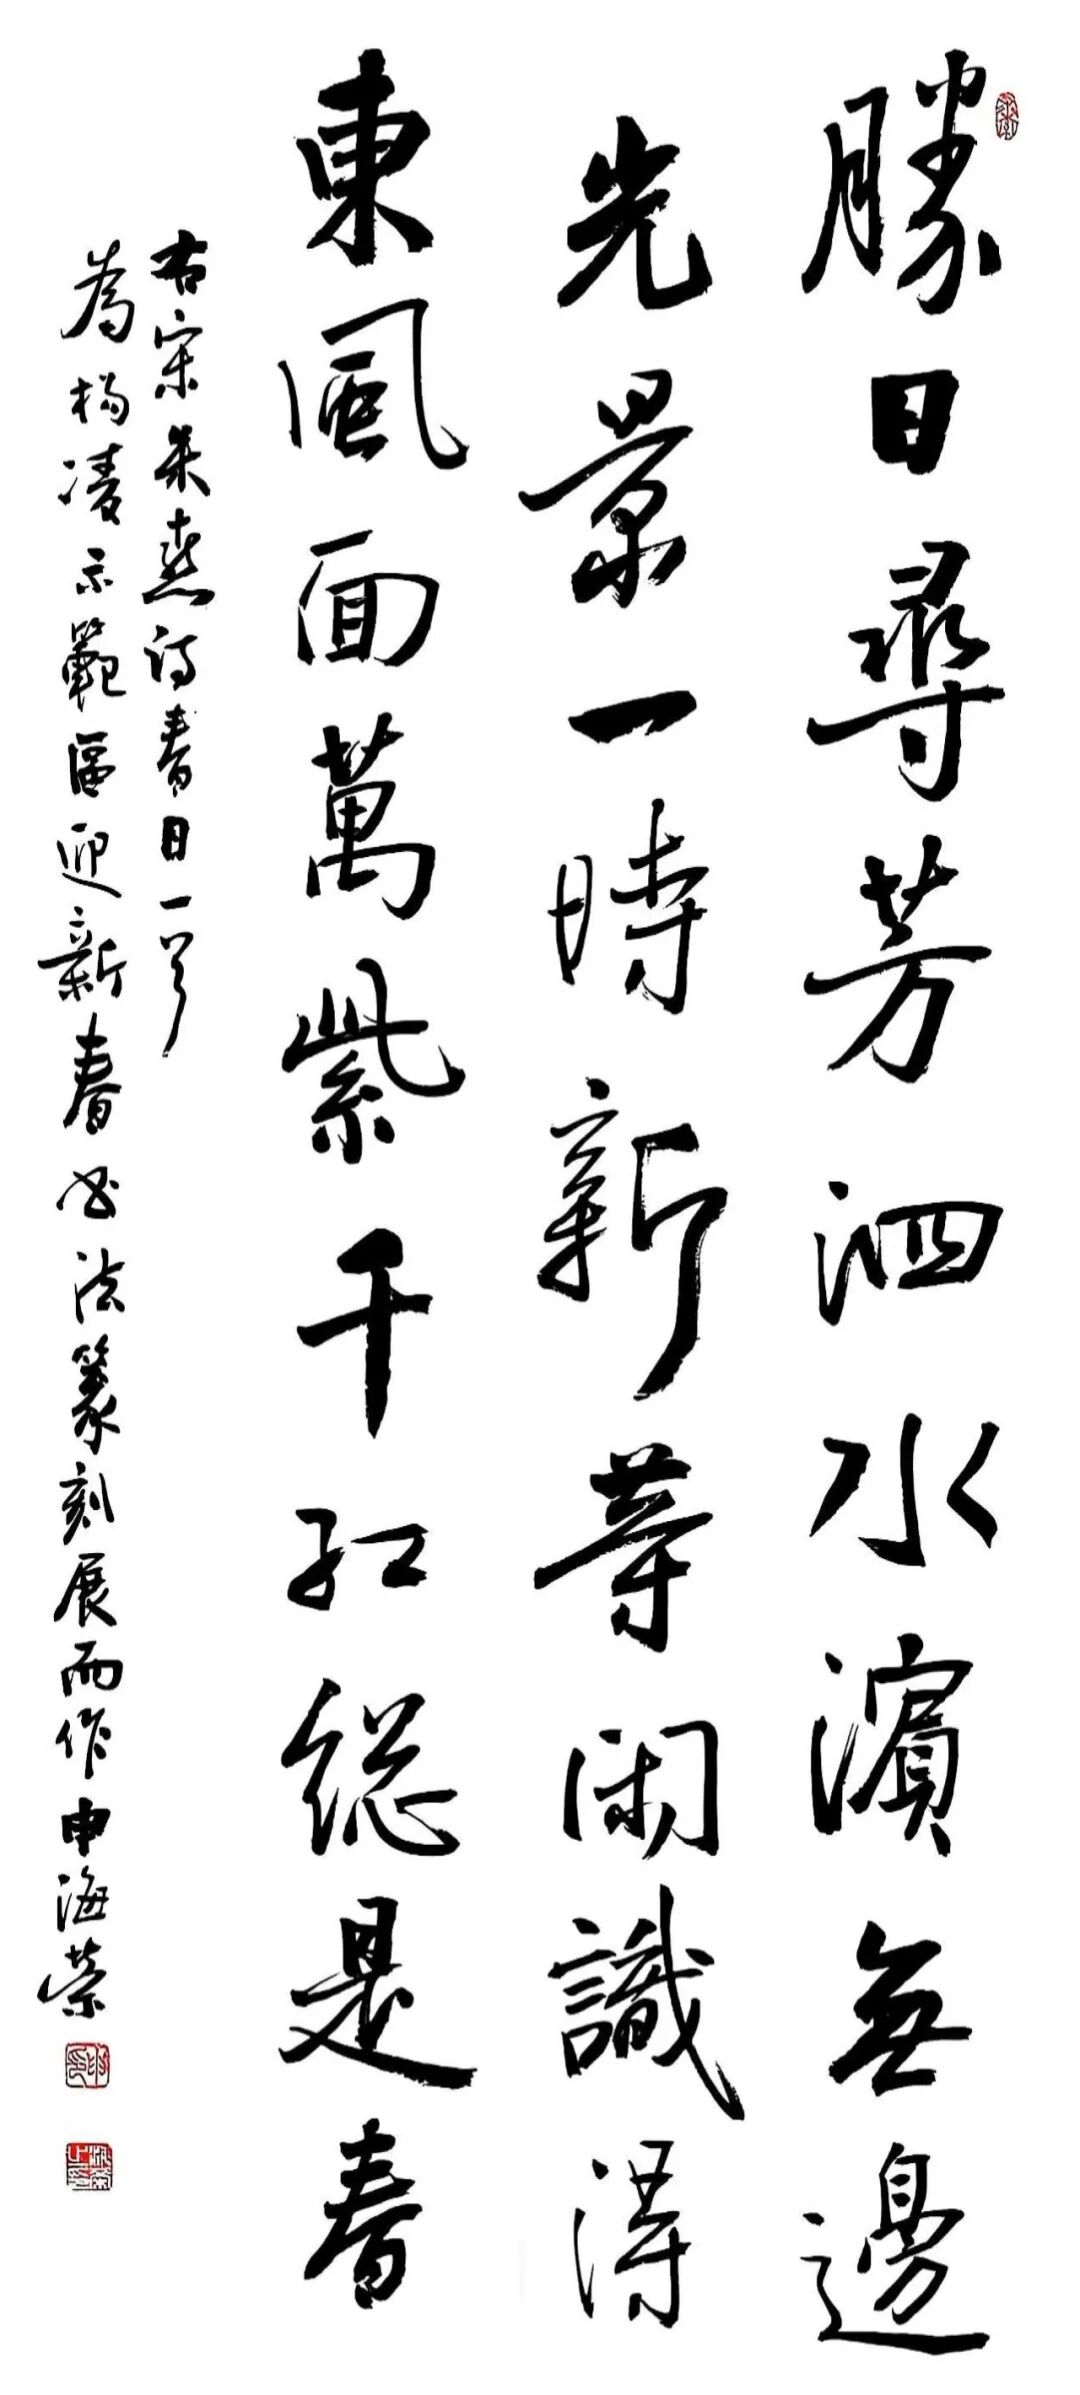 勝日尋芳泗水濱無邊
光景一時新等閑識得
東風面萬紫千紅総是春
右宋朱熹詩春日一首
為楊凌示範區迎新春书法篆刻展而作申海榮